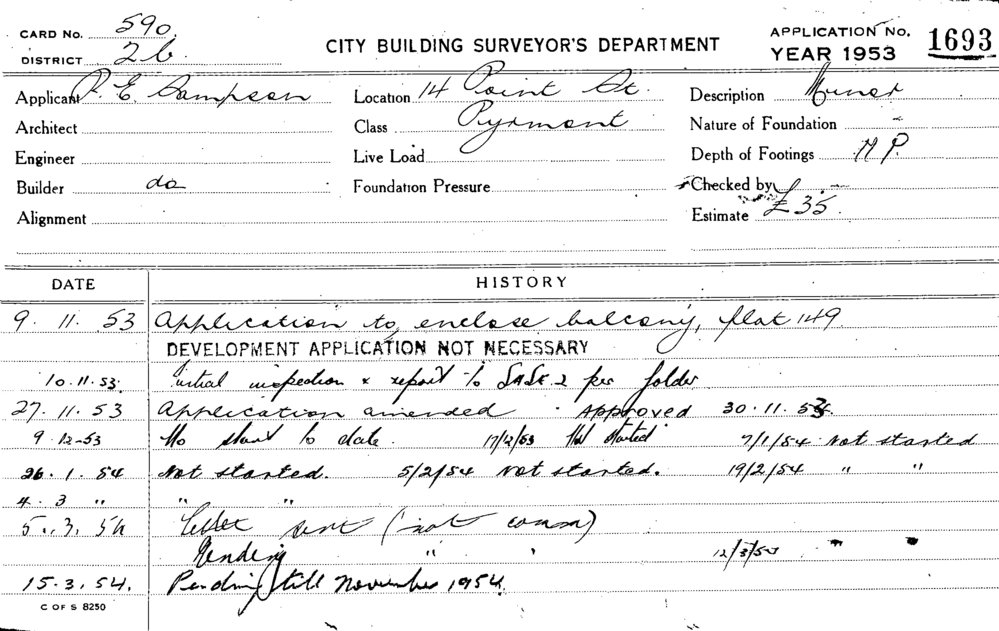 CARD No. 590
DISTRICT 2b
CITY BUILDING SURVEYOR'S DEPARTMENT
APPLICATION No. 1693
YEAR 1953
Applicant P. E. Sampson
Location 14 Point St.
Description Minor
Architect
Class Pyrmont
Nature of Foundation -
Engineer
Live Load
Depth of Footings M P.
Builder do
Foundation Pressure
Checked by
Alignment
Estimate £35.
DATE HISTORY
9. 11. 53 Application to enclose balcony, flat 149
DEVELOPMENT APPLICATION NOT NECESSARY
10.11.53. Initial inspection & report to per folder
27. 11. 53 Application amended. Approved 30.11.53.
9.12-53 No start to date. 17/12/53 Not started 7/1/54 Not started
26.1.54 Not started. 5/2/54 Not started. 19/2/54 " "
4. 3 " " "
5. 3. 54 Letter sent (not comm)
Pending " " 12/3/54 " "
15.3.54. Pending till November 1954.
C OF S 8250